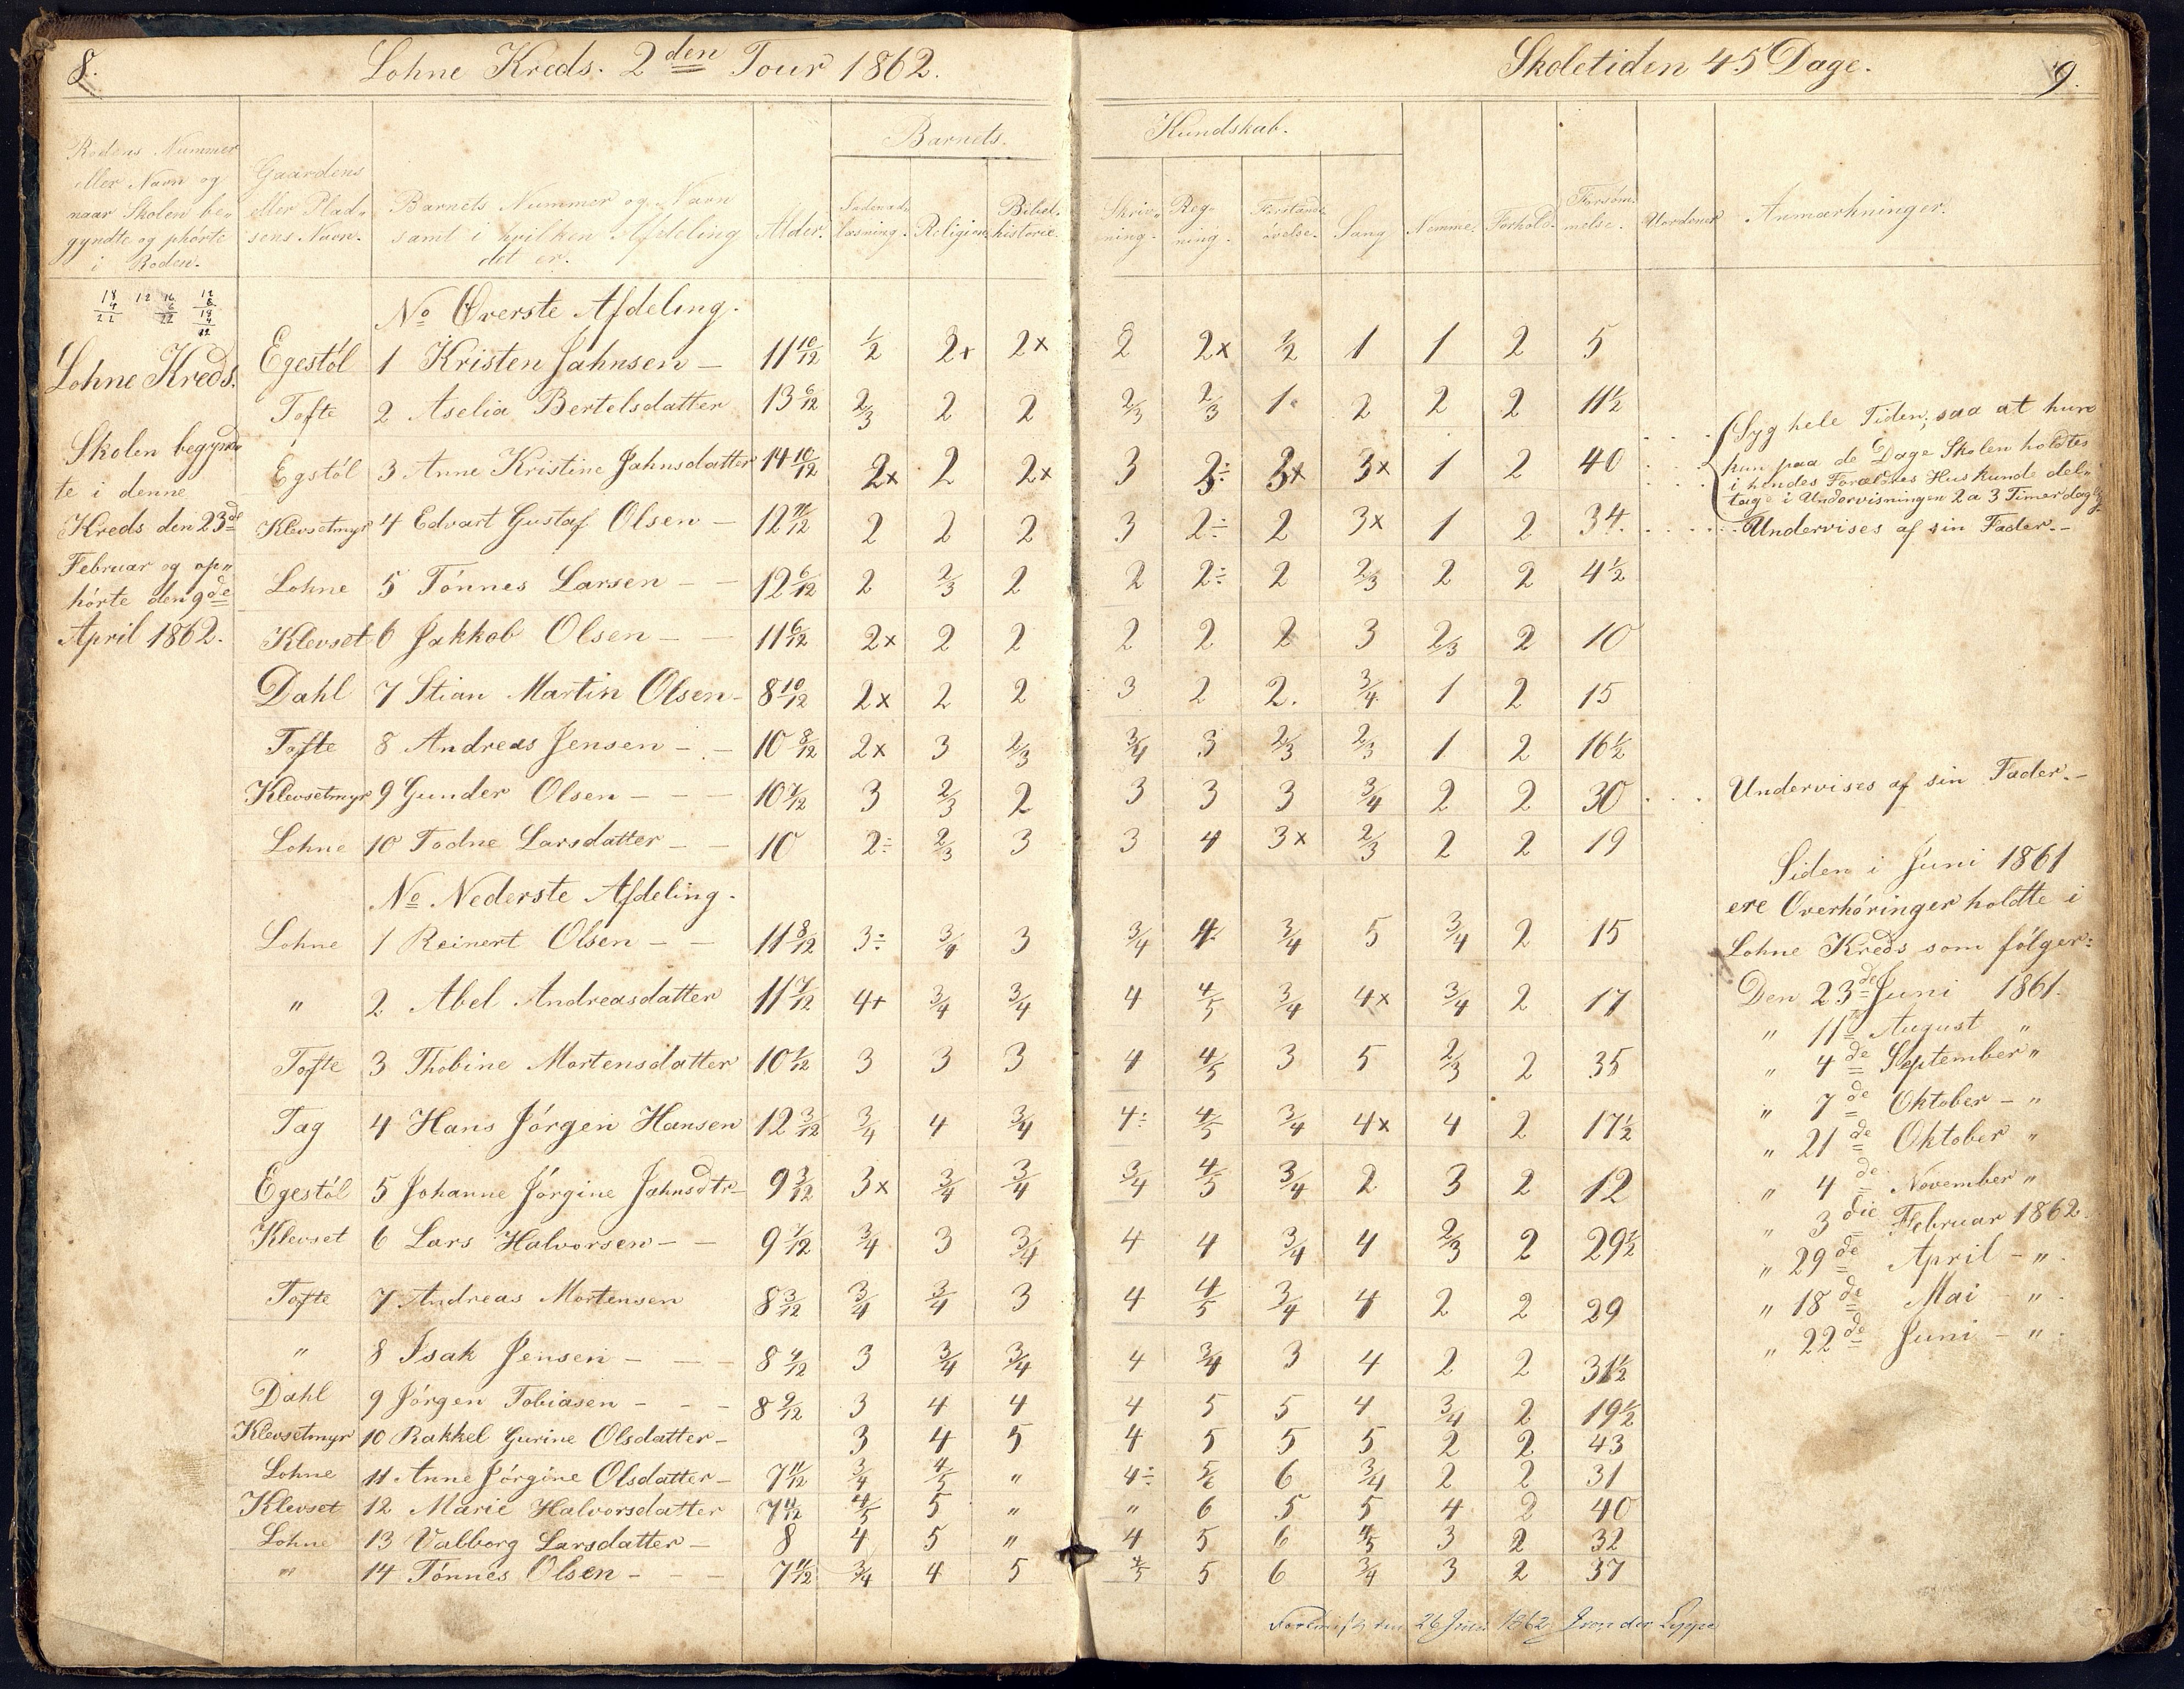 8. Lohne Kreds. 2den Tour 1862. Skoletiden 45 Dage. 9.
Barnets. Kundskab.
Rodens Nummer
eller Navn og
naar Skolen be„
gyndte og ophörte
i Roden.
Gaardens
eller Plad„
sens Navn.
Barnets Nummer og Navn
samt i hvilken Afdeling
det er.
Alder.
læsning.
Religion.
Bibel„
historie.
Skriv„
ning.
Reg„
ning.
Forstands„
övelse.
Sang
Nemme.
Forhold.
Forsöm„
melse.
Anmærkninger.
18 12 16 12
4 6 6
22 22 18
4
22
Lohne Kreds.
Skolen begynd„
te i denne
Kreds den 23de
Februar og op„
hörte den 9de
April 1862.
No Överste Afdeling.
Egestöl 1 Kristen Jahnsen – 11 10/12 1/2 2+ 2x 2 2x 1/2 1 1 2 5
Tofte 2 Aselia Bertelsdatter 13 6/12 2/3 2 2 2/3 2/3 1 2 2 2 11 1/2
Egstöl 3 Anne Kristine Jahnsdatter 14 10/12 2x 2 2x 3 3÷ 3x 3x 1 2 40
Klevsetmyr 4 Edvart Gustaf Olsen – 12 11/12 2 2 2 3 2÷ 2 3x 1 2 34.
Lohne 5 Tönnes Larsen – – 12 6/12 2 2/3 2 2 2÷ 2 2/3 2 2 4 1/2
Klevset 6 Jakkob Olsen – – 11 6/12 2x 2 2 2 2 2 3 2/3 2 10
Dahl 7 Stian Martin Olsen – 8 10/12 2x 2 2 3 2 2. 3/4 1 2 15
Tofte 8 Andreas Jensen – – 10 8/12 2x 3 2/3 3/4 3 2/3 2/3 1 2 16 1/2
Klevsetmyr 9 Gunder Olsen – – – 10 7/12 3 2/3 2 3 3 3 3/4 2 2 30
Lohne 10 Todne Larsdatter – – 10 2÷ 2/3 3 3 4 3x 2/3 2 2 19
No Nederste Afdeling.
Lohne 1 Reinert Olsen – – 11 8/12 3÷ 3/4 3 3/4 4 3/4 5 3/4 2 15
„ 2 Abel Andreasdatter 11 7/12 4+ 3/4 3/4 4 4/5 3/4 4x 3/4 2 17
Tofte 3 Thobine Mortensdatter 10 1/12 3 3 3 4 4/5 3 5 2/3 2 35
Tag 4 Hans Jörgen Hansen 12 3/12 3/4 4 3/4 4÷ 4/5 3/4 4x 4 2 17 1/2
Egestöl 5 Johanne Jörgine Jahnsdtr– 9 3/12 3x 3/4 3/4 3/4 4/5 3/4 2 3 2 12
Klevset 6 Lars Halvorsen – – 9 7/12 3/4 3 3/4 4 4 3/4 4 2/3 2 29 1/2
Tofte 7 Andreas Mortensen 8 3/12 3/4 3/4 3 4 4/5 3/4 4 2 2 29
„ 8 Isak Jensen – – – 8 4/12 3 3/4 3/4 4 3/4 3 4 2 2 31 1/2
Dahl 9 Jörgen Tobiasen – – – 8 9/12 3 4 4 4 5 5 4 3/4 2 19 1/2
Klevsetmyr 10 Rakkel Gurine Olsdatter – 3 4 5 4 5 5 5 2 2 43
Lohne 11 Anne Jörgine Olsdatter – 7 11/12 3/4 4/5 „ 4÷ 5/6 6 3/4 2 2 31
Klevset 12 Marie Halvorsdatter 7 11/12 4/5 5 „ „ 6 5 5 4 2 40
Lohne 13 Valborg Larsdatter – 8 4 5 „ 4 5 6 4/5 3 2 32
„ 14 Tönnes Olsen – – – 7 11/12 3/4 4 5 4/5 5 6 3/4 3 2 37
Syg hele Tiden; saa at hun
kun paa de Dage Skolen holdtes
i hendes Forældres Hus kunde del„
tage i Undervisningen 2 a 3 Timer daglig
Undervises af sin Fader. –
Undervises af sin Fader. –
Siden i Juni 1861
ere Overhöringer holdte i
Lohne Kreds som fölger:
Den 23de Juni 1861.
„ 11te August „
„ 4de September „
„ 7de Oktober – „
„ 21de Oktober „
„ 4de November „
„ 3die Februar 1862.
„ 29de April – „.
„ 18de Mai – „.
„ 22de Juni – „.
26 Juni 1862